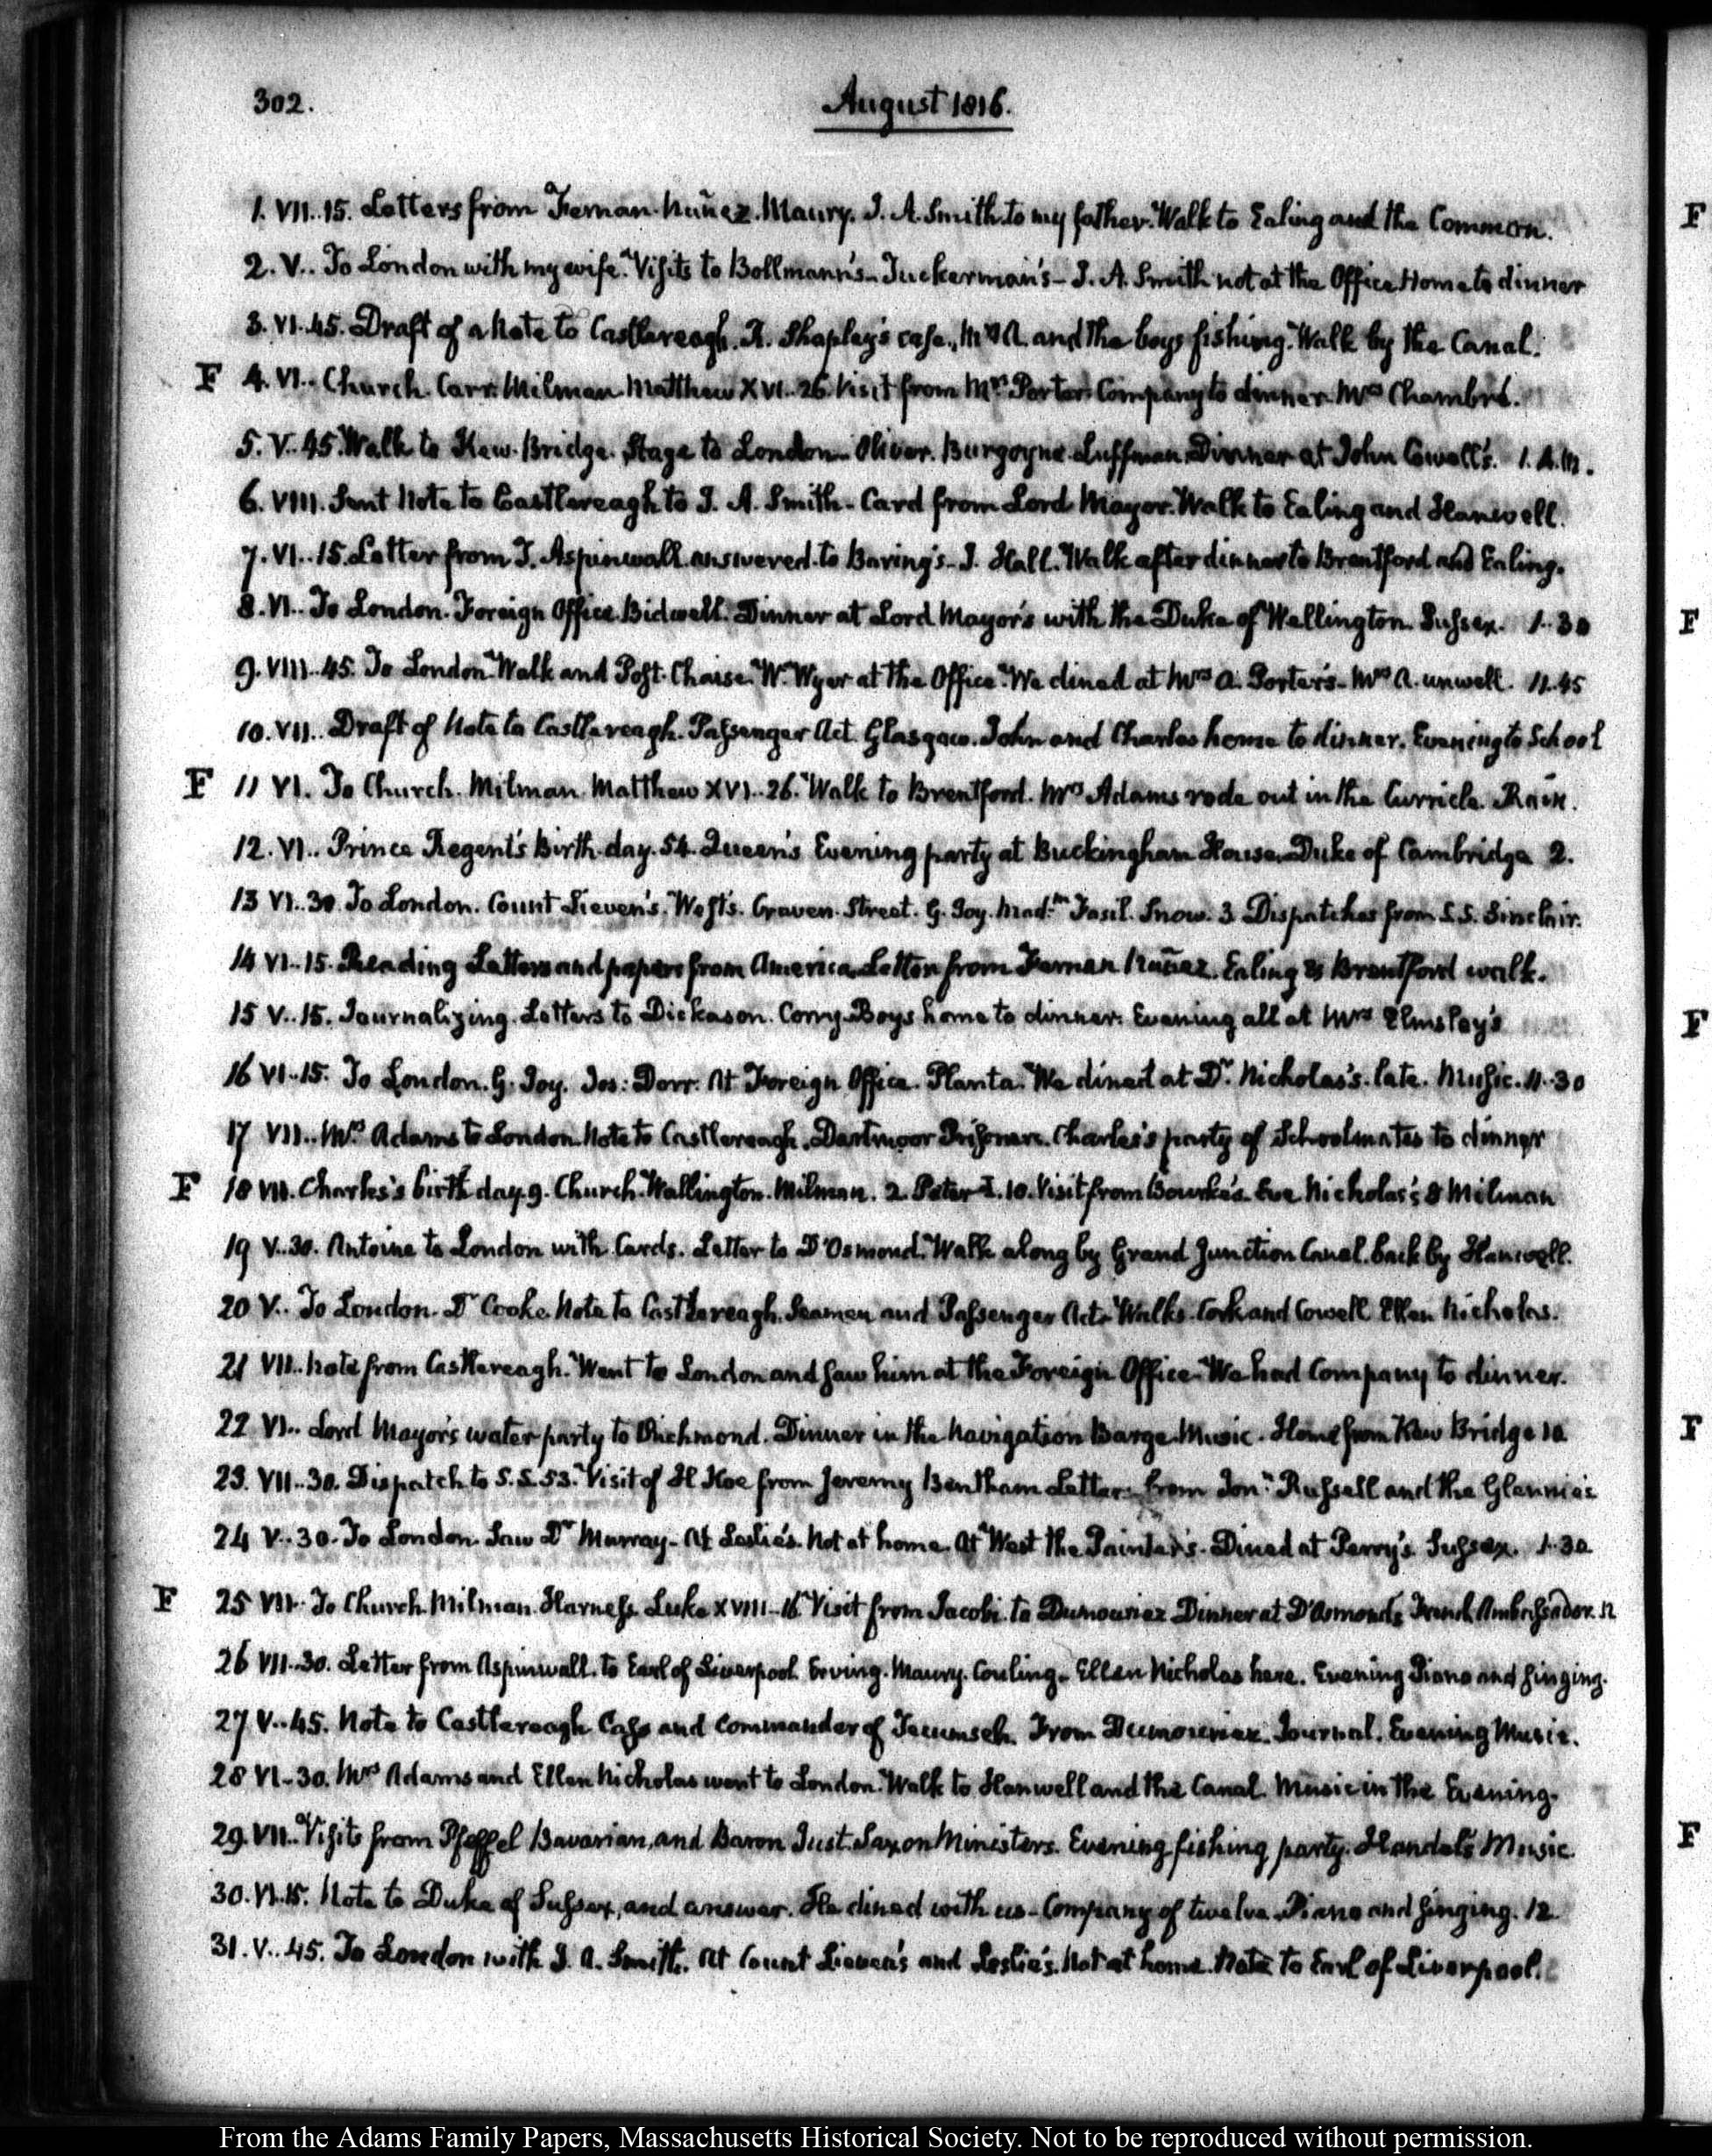 302.
August 1816.
1. VII..15. Letters from Fernan-Nuñez. Maury. J. A. Smith. to my father. Walk to Ealing and the Common.
2. V.. To London with my wife. Visits to Bollmann's- Tuckerman's- J. A. Smith not at the Office Home to dinner
3. VI..45. Draft of a Note to Castlereagh. R. Shapley's case. Mrs A. and the boys fishing. Walk by the Canal.
F 4. VI.. Church. Carr. Milman Matthew XVI..26. Visit from Mrs Porter. Company to dinner Mrs
5. V..45. Walk to Kew-Bridge. Stage to London. Oliver. Burgoyne. Luffman Dinner at John Cowell's. 1. A.M.
6. VIII. Sent Note to Castlereagh to J. A. Smith- Card from Lord Mayor. Walk to Ealing and Hanwell.
7. VI..15. Letter from T. Aspinwall. answered. to Baring's- J. Hall. Walk after dinner to Brentford and Ealing.
8. VI.. To London. Foreign Office. Bidwell. Dinner at Lord Mayor's with the Duke of Wellington. Sussex. 1..30
9. VIII..45. To London. Walk and Post-Chaise. W. Wyer at the Office. We dined at Mrs A. Porter's- Mrs A. unwell. 11.45
10. VII.. Draft of Note to Castlereagh. Passenger Act. Glasgow. John and Charles home to dinner. Evening to School
F 11 VI. To Church. Milman. Matthew XVI..26. Walk to Brentford. Mrs Adams rode out in the Curricle. Rain.
12. VI.. Prince Regent's Birth-day. 54. Queen's Evening party at Buckingham House. Duke of Cambridge 2.
13 VI..30. To London. Count Lieven's. West's. Craven-Street. G. Joy. Snow. 3 Dispatches from S.S. Sinclair.
14 VI..15. Reading Letters and papers from America. Letter from Fernan Nuñez. Ealing & Brentford walk.
15 V..15. Journalizing. Letters to Dickason. Boys home to dinner. Evening all at Mrs Elmsley's
16 VI..15. To London. G. Joy. Jos: Dorr. At Foreign Office. Planta. We dined at Dr Nicholas's. late. Music. 11..30
17 VII.. Mrs Adams to London. Note to Castlereagh. Dartmoor Prisoners. Charles's party of Schoolmates to dinner
F 18 VII. Charles's birth day. 9. Church. Wallington. Milman. 2. Peter I.10. Visit from Bourke's. Eve Nicholas's & Milman
19 V..30. Antoine to London with Cards. Letter to D'Osmond. Walk along by Grand Junction Canal. back by Hanwell.
20 V.. To London. Dr Cooke. Note to Castlereagh. Seamen and Passenger Act. Walks. Cork and Cowell Ellen Nicholas.
21 VII.. Note from Castlereagh. Went to London and saw him at the Foreign Office. We had Company to dinner.
22 VI.. Lord Mayor's water party to Richmond. Dinner in the Navigation Barge. Music. Home from Kew Bridge 10.
23. VII..30. Dispatch to S.S. 53. Visit of H Koe from Jeremy Bentham Letter from Jon: Russell and the Glennie's
24 V..30. To London. Saw Dr Murray- At Leslie's. Not at home. At West the Painter's. Dined at Perry's. Sussex. 1.30
F 25 VII. To Church. Milman. Harness. Luke XVIII..16 Visit from Jacobi. to Dumouriez Dinner at D'Osmond's French Ambassador. 12
26 VII..30. Letter from Aspinwall. to Earl of Liverpool. Erving. Maury. Couling. Ellen Nicholas here. Evening Piano and singing.
27 V..45. Note to Castlereagh Case and Commander of Tecumseh. From Dumouriez. Journal. Evening Music.
28 VI..30. Mrs Adams and Ellen Nicholas went to London. Walk to Hanwell and the Canal. Music in the Evening.
29. VII.. Visits from Pfeffel Bavarian, and Baron Just. Saxon Ministers. Evening fishing party. Handel's Music.
30. VI.15. Note to Duke of Sussex, and answer. He dined with us- Company of twelve. Piano and singing. 12.
31. V..45. To London with J. A. Smith. At Count Lieven's and Leslie's. Not at home. Note to Earl of Liverpool.
F
F
F
F
F
From the Adams Family Papers, Massachusetts Historical Society. Not to be reproduced without permission.